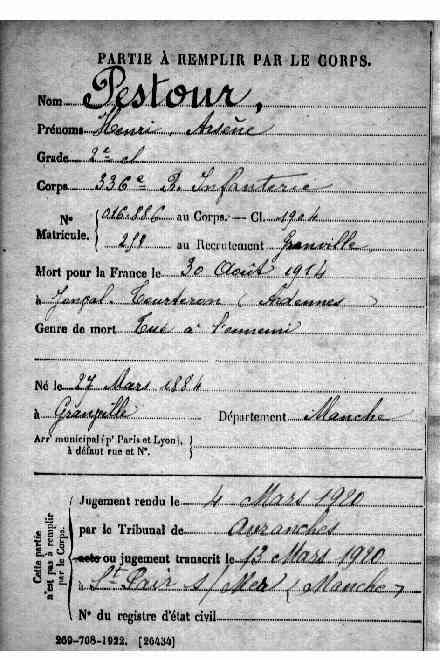 PARTIE À REMPLIR PAR LE CORPS.
Nom Pestour,
Prénoms Henri, Arsène
Grade 2e cl
Corps 336e R. Infanterie
N° Matricule. { 016.886 au Corps. — Cl. 1904
218 au Recrutement Granville
Mort pour la France le 30 Août 1914
à Tourteron (Ardennes)
Genre de mort Tué à l'ennemi
Né le 27 Mars 1884
à Granville Département Manche
Arr' municipal (p' Paris et Lyon),
à défaut rue et N°.
Cette partie n'est pas à remplir par le Corps.
Jugement rendu le 4 Mars 1920
par le Tribunal de Avranches
acte ou jugement transcrit le 13 Mars 1920
à St Pair s/Mer (Manche)
N° du registre d'état civil
269-708-1922. [26434]